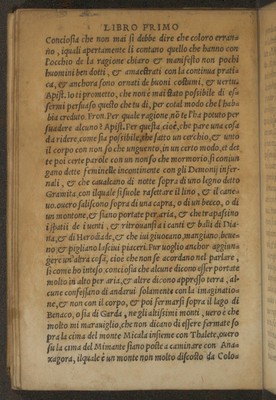 LIBRO PRIMO
Conciosia che non mai si debbe dire che coloro errano
no, iquali apertamente li contano quello che hanno con
l'occhio de la ragione chiaro & manifesto non pochi
huomini ben dotti, & amaestrati con la continua pratica,
& anchora sono ornati de buoni costumi, & vertù,
Apist. Io ti prometto, che non è mai stato possibile di essermi
persuaso questo che tu di, per cotal modo che l'habbia
creduto. Fron. Per quale ragione, nō te l'ha potuto persuadere
alcuno? Apist. Per questa, cioè, che pare una cosa
da ridere, come sia possibile, che fatto un cerchio, & unto
il corpo con non so che unguento, in un certo modo, et dette
poi certe parole con un non so che mormorio, si comungano
dette feminelle incontinente con gli Demonij infernali,
& che cavalcano di notte sopra di uno legno detto
Gramita, con ilquale si suole rassettare il lino, & il caneuo.
ouero saliscono sopra di una capra, o di un becco, o di
un montone, & siano portate per aria, & che trapassino
i spatii de i uenti, & ritrouansi a i canti & balli di Diana,
& di Herodiade, & che iui giuocano, mangiano, beueno,
& pigliano lasciui piaceri. Pur uoglio anchor aggiungere
un'altra cosa, cioe che non se accordano nel parlare,
si come ho inteso, conciosia che alcune dicono esser portate
molto in alto per aria, & altre dicono appresso terra, alcune
confessano di andarui solamente con la imaginatione,
& non con il corpo, & poi fermarsi sopra il lago di
Benaco, o sia di Garda, ne gli altissimi monti, uero è che
molto mi marauiglio, che non dicano di essere fermate sopra
la cima del monte Micala insieme con Thalete, ouero
su la cima del Mimante siano poste a caminare con Anaxagora,
ilquale è un monte non molto discosto da Colo-